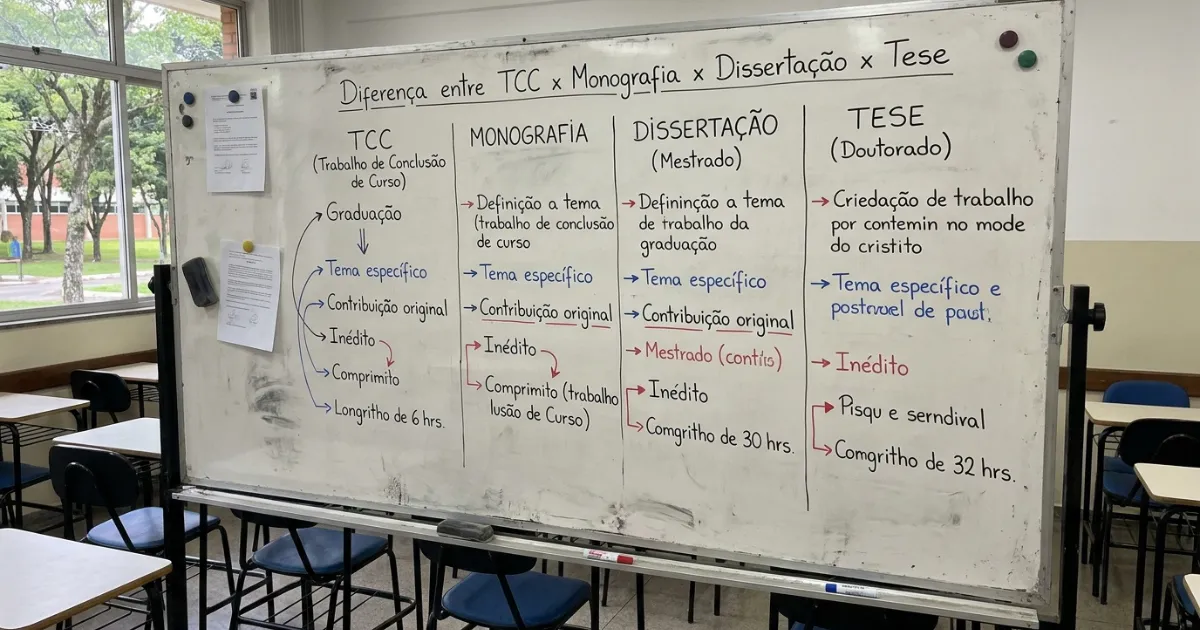 Diferença entre TCC x Monografia x Dissertação x Tese
TCC
(Trabalho de Conclusão
de Curso)
Graduação
Tema específico
Contribuição original
Inédito
Comprimito
Longritho de 6 hrs.
MONOGRAFIA
Definição a tema
(trabalho de conclusão
de curso
Tema específico
Contribuição original
Inédito
Comprimito (trabalho
lusão de Curso)
DISSERTAÇÃO
(Mestrado)
Defininção a tema
de trabalho da
graduação
Tema específico
Contribuição original
Mestrado
Inédito
Comgritho de 30 hrs.
TESE
(Doutorado)
Criedação de trabalho
por contemin no mode
do cristito
Tema específico e
de
Inédito
Pisqu e serndival
Comgritho de 32 hrs.